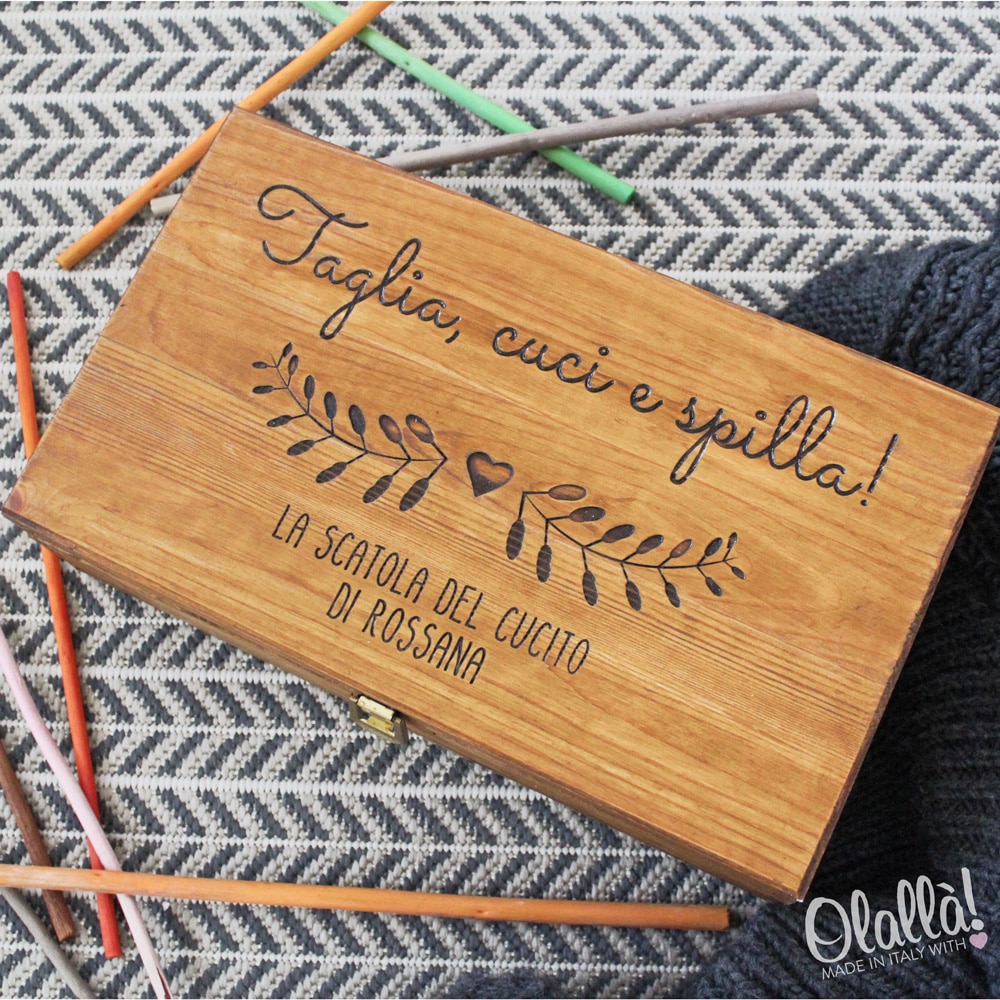 Taglia, cuci e spilla!
LA SCATOLA DEL CUCITO
DI ROSSANA
Olallà!
MADE IN ITALY WITH